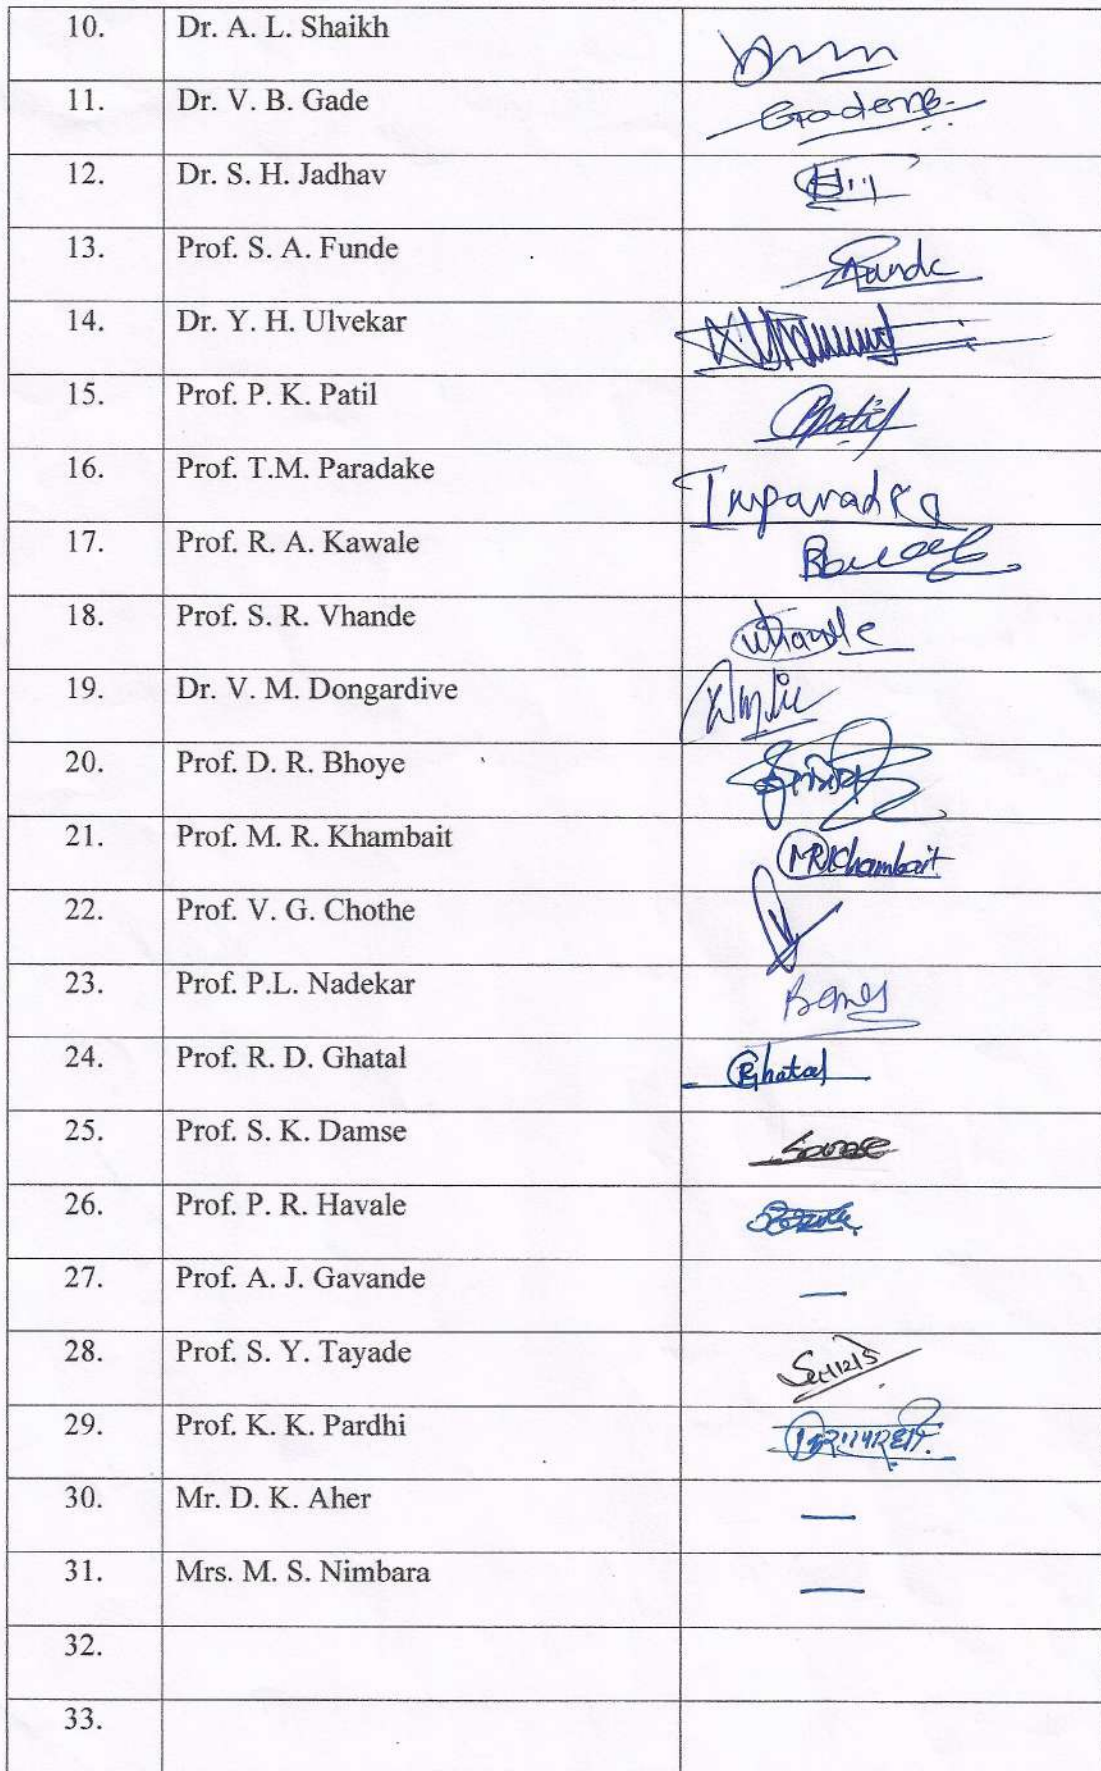 10. Dr. A. L. Shaikh
11. Dr. V. B. Gade
12. Dr. S. H. Jadhav
13. Prof. S. A. Funde
14. Dr. Y. H. Ulvekar
15. Prof. P. K. Patil
16. Prof. T.M. Paradake
17. Prof. R. A. Kawale
18. Prof. S. R. Vhande
19. Dr. V. M. Dongardive
20. Prof. D. R. Bhoye
21. Prof. M. R. Khambait MRKhambait
22. Prof. V. G. Chothe
23. Prof. P.L. Nadekar
24. Prof. R. D. Ghatal Ghatal
25. Prof. S. K. Damse
26. Prof. P. R. Havale
27. Prof. A. J. Gavande —
28. Prof. S. Y. Tayade
29. Prof. K. K. Pardhi
30. Mr. D. K. Aher —
31. Mrs. M. S. Nimbara —
32.
33.